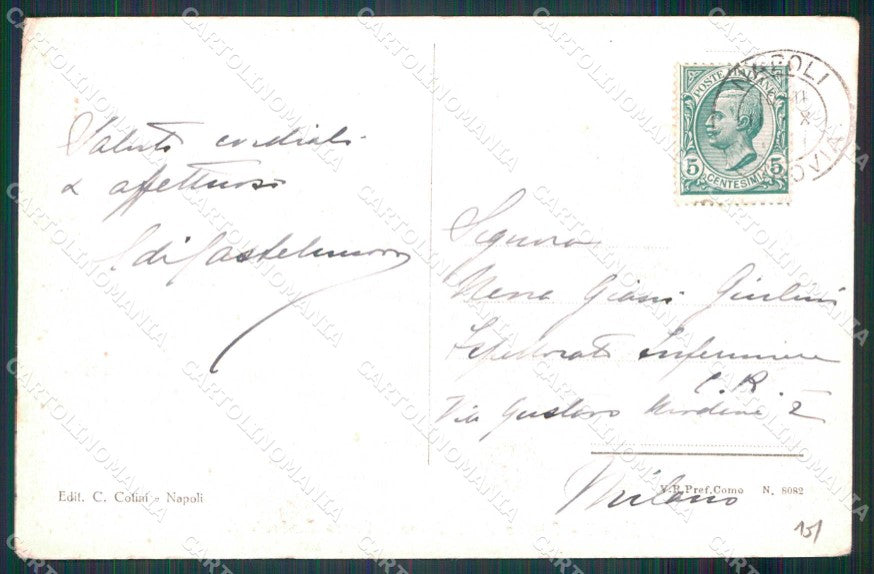 Saluti cordiali
e affettuosi
di Castelnuovo
POSTE ITALIANE
5 CENTESIMI 5
NAPOLI
FERROVIA
Signora
Nena Giani Giulini
Ispettorato Infermiere
C. R.
Via Gustavo Modena 2
Milano
Edit. C. Cotini - Napoli
V.R.Pref.Como N. 8082
15/
CARTOLINOMANIA